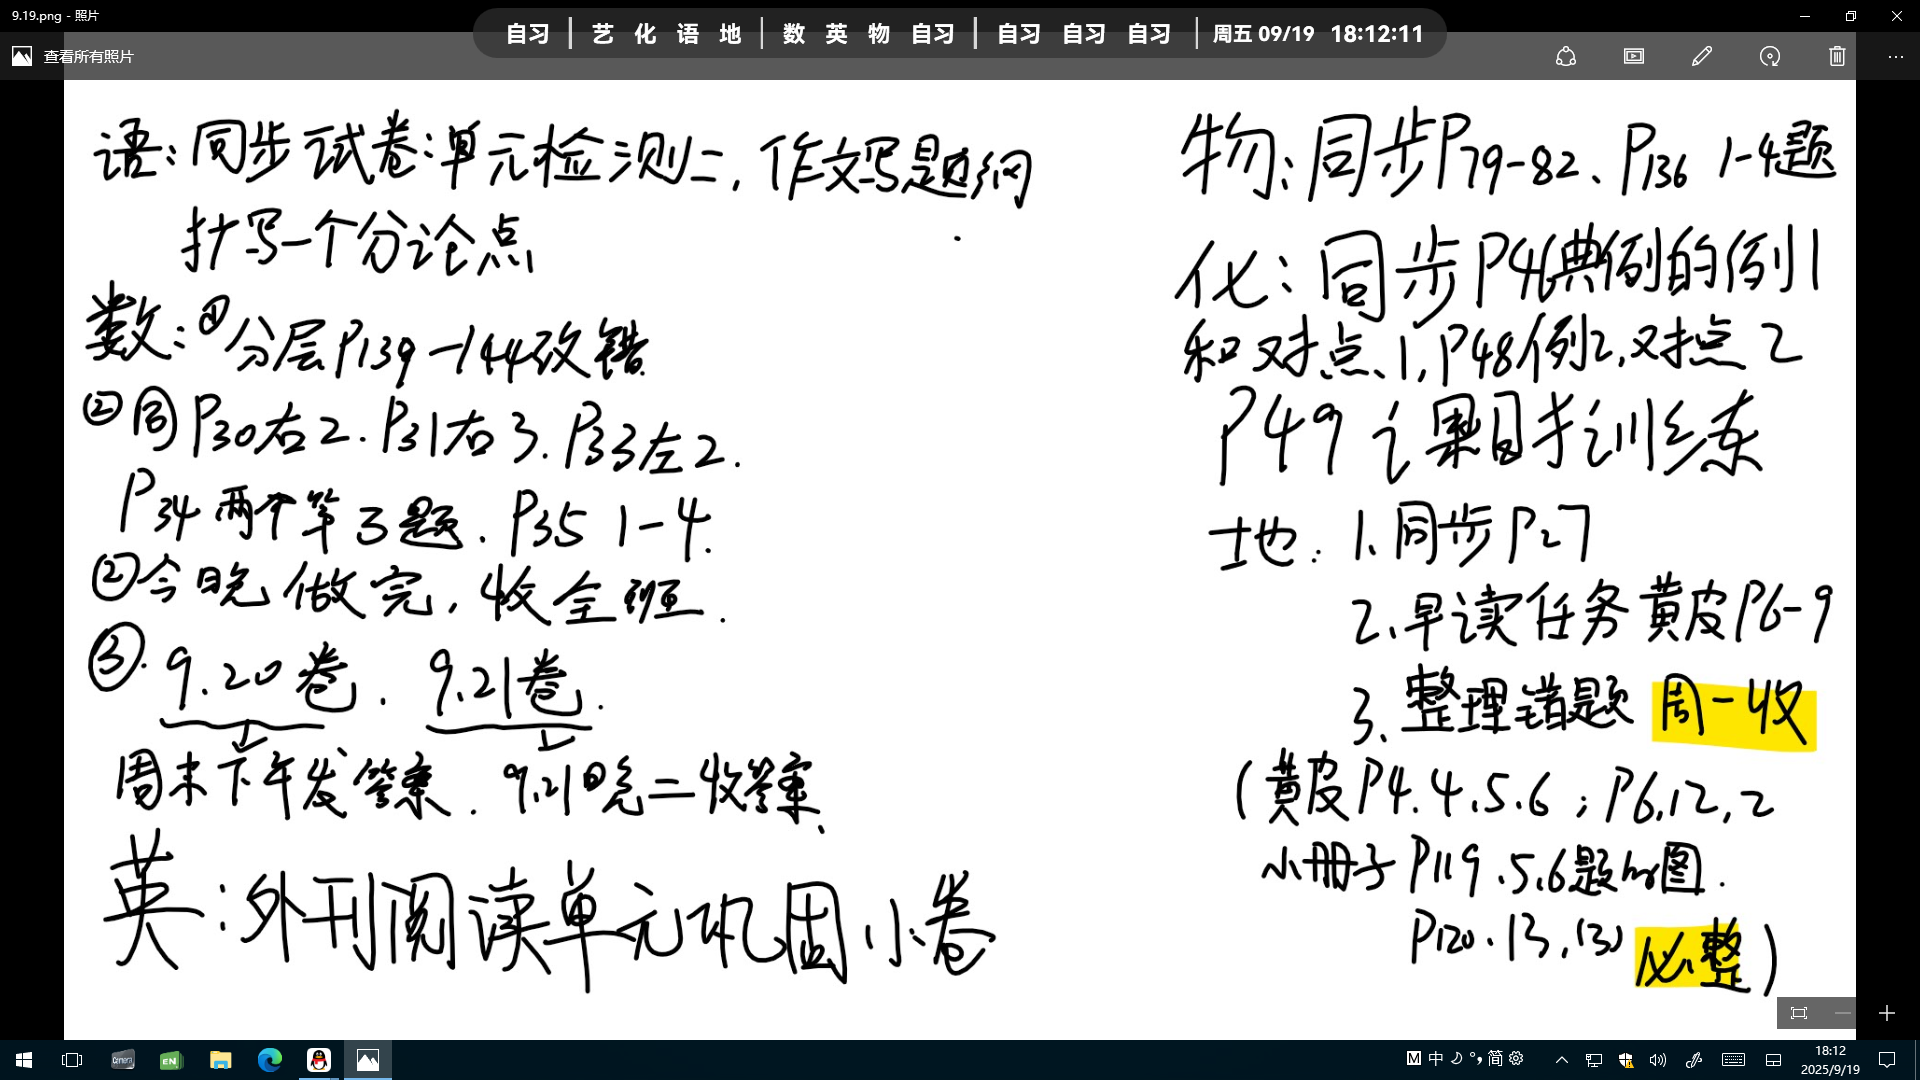 9.19.png - 照片
自习 | 艺 化 语 地 | 数 英 物 自习 | 自习 自习 自习 | 周五 09/19 18:12:11
查看所有照片
语:同步试卷:单元检测二,作文写题纲
抄写一个分论点
数:①分层P139-144改错
②同P30右2.P31右3.P33左2.
P34两个第3题.P35 1-4.
②今晚做完,收全班.
③.9.20卷.9.21卷.
周末下午发答案.9.21晚二收答案.
英:外刊阅读单元巩固小卷
物:同步P79-82、P136 1-4题
化:同步P46典例的例1
和对点、1,P48例2,对点2
P49课时训练
地:1.同步P27
2.早读任务黄皮P6-9
3.整理错题 周一收
(黄皮P4.4.5.6;P6,12,2
小册子P119.5.6题的图.
P120.13,(3)必整)
中 简
18:12
2025/9/19